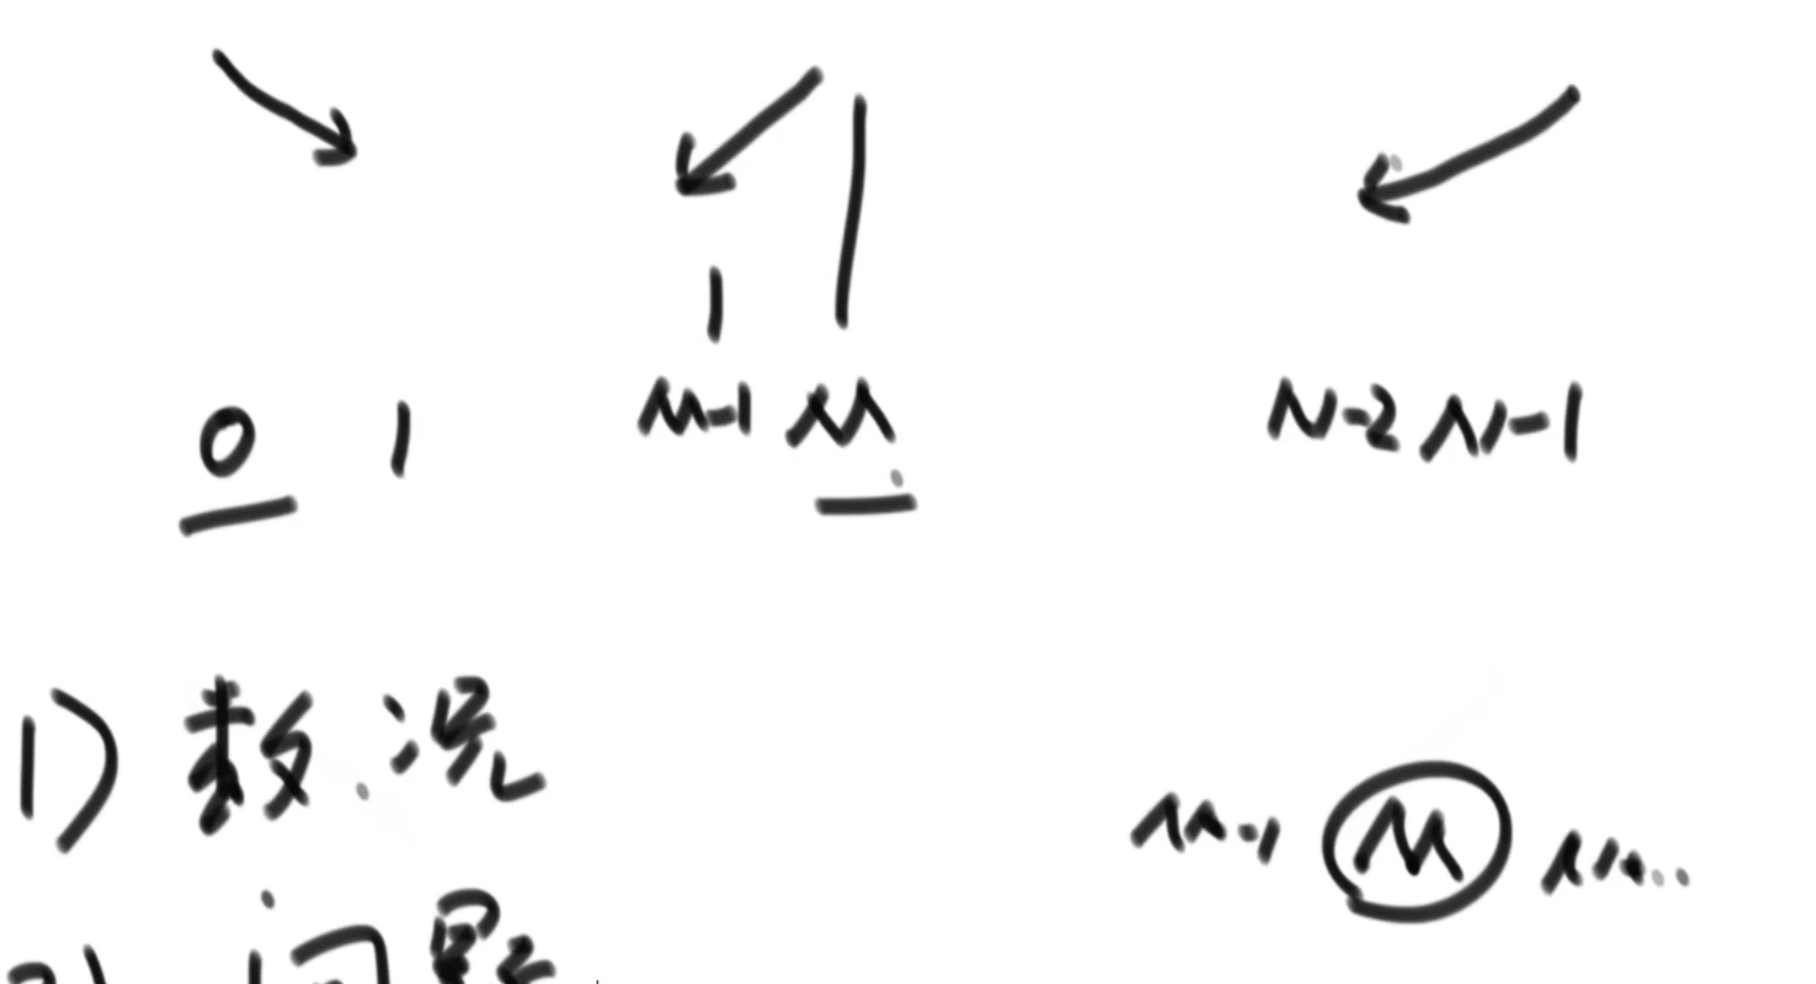 0 1 M-1 M N-2 N-1
1) 数 况
M-1 M
问题